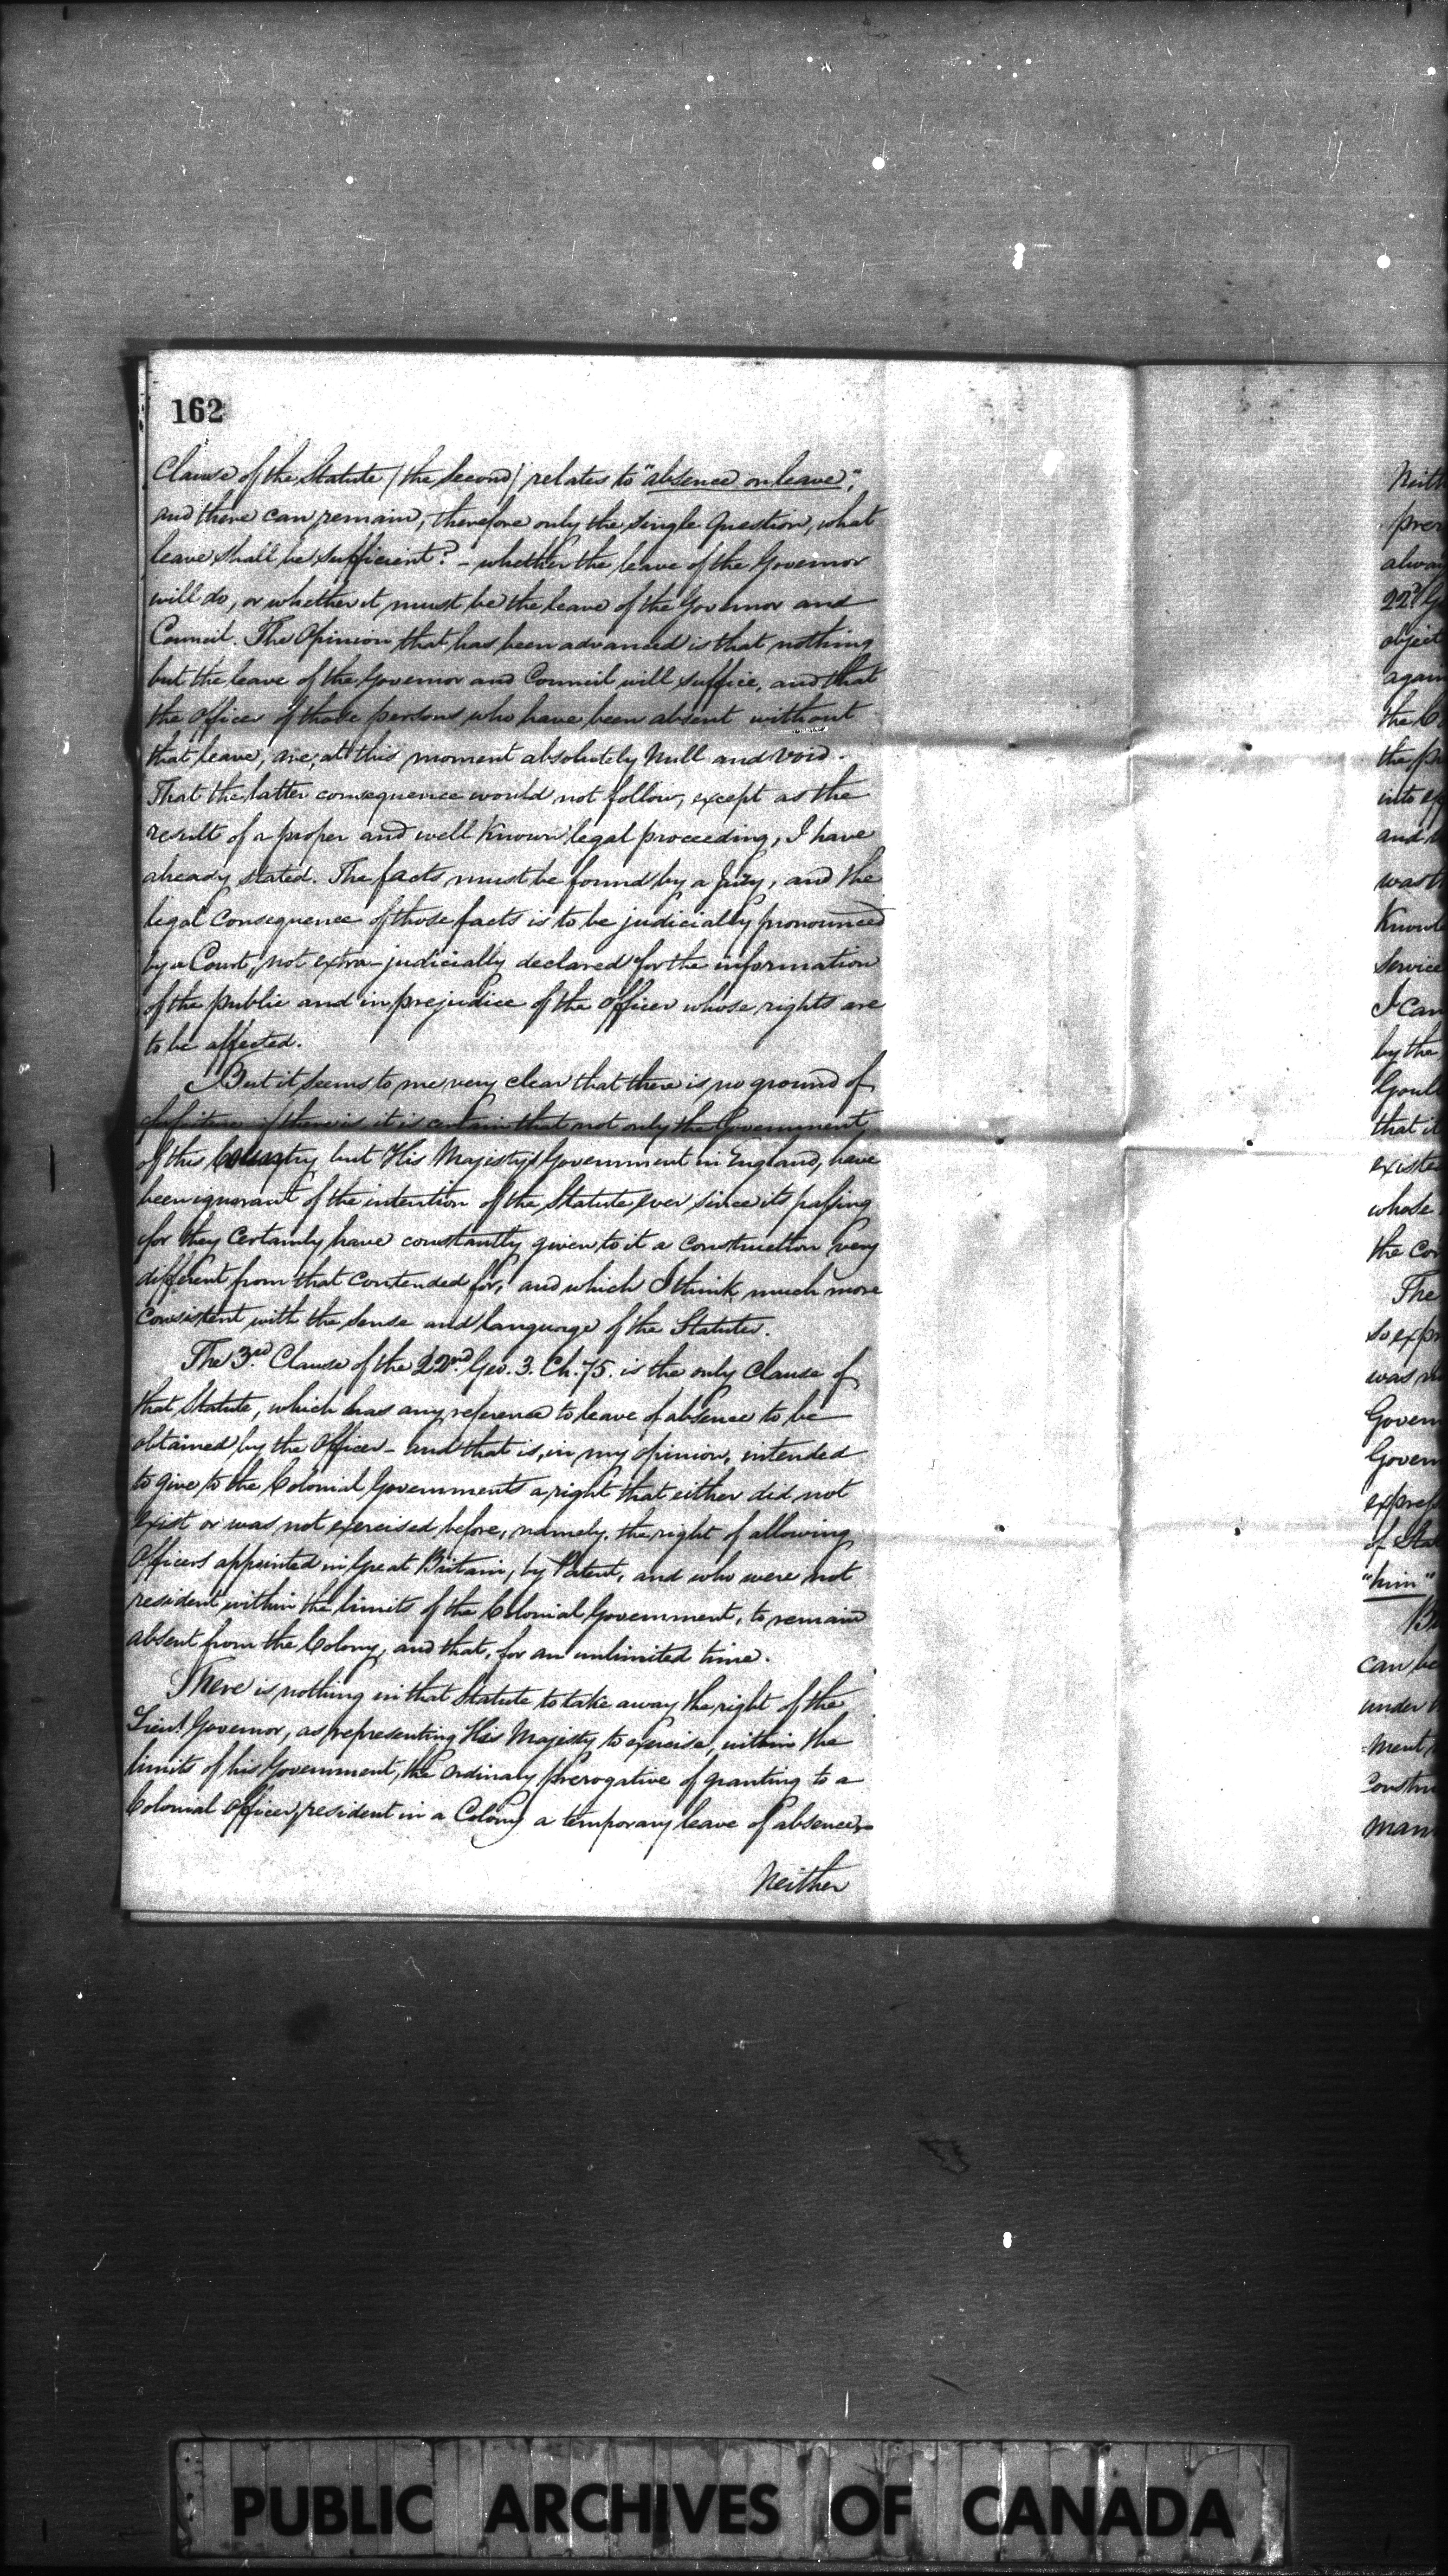 162
Clause of the Statute (the Second) relates to "absence on leave",
and there can remain, therefore only the single Question, what
leave shall be sufficient? - whether the leave of the Governor
will do, or whether it must be the leave of the Governor and
Council. The Opinion that has been advanced is that nothing
but the leave of the Governor and Council will suffice, and that
the Offices of those persons who have been absent without
that leave, are, at this moment absolutely Null and void.
That the latter consequence would not follow, except as the
result of a proper and well known legal proceeding, I have
already stated. The facts must be found by a Jury, and the
legal Consequence of those facts is to be judicially pronounced
by a Court, not extra-judicially declared for the information
of the public and in prejudice of the Officer whose rights are
to be affected.
But it seems to me very clear that there is no ground of
if there is it is certain that not only the Government
of this Country but His Majesty's Government in England, have
been ignorant of the intention of the Statute ever since its passing
for they Certainly have constantly given to it a Construction very
different from that Contended for, and which I think much more
Consistent with the sense and language of the Statutes.
The 3rd Clause of the 22nd Geo. 3. Ch. 75. is the only Clause of
that Statute, which has any reference to leave of absence to be
obtained by the Officer - and that is, in my opinion, intended
to give to the Colonial Governments a right that either did not
exist or was not exercised before, namely, the right of allowing
Officers appointed in Great Britain, by Patent, and who were not
resident within the limits of the Colonial Government, to remain
absent from the Colony, and that, for an unlimited time.
There is nothing in that Statute to take away the right of the
Lieut. Governor, as representing His Majesty to exercise, within the
limits of his Government, the Ordinary Prerogative of granting to a
Colonial Officer, resident in a Colony a temporary leave of absence,
Neither
PUBLIC ARCHIVES OF CANADA